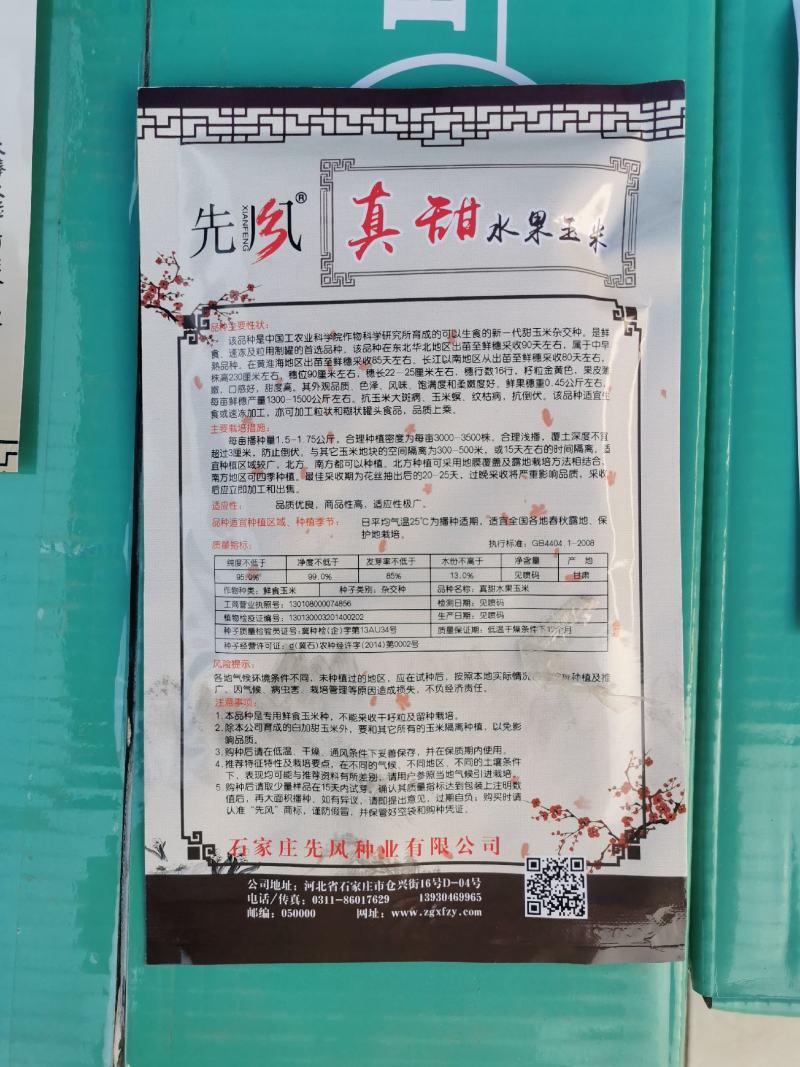 先风®
XIANFENG
真甜水果玉米
品种主要性状：
该品种是中国工农业科学院作物科学研究所育成的可以生食的新一代甜玉米杂交种。是鲜
食、速冻及粒用制罐的首选品种。该品种在东北华北地区出苗至鲜穗采收90天左右，属于中早
熟品种，在黄淮海地区出苗至鲜穗采收85天左右，长江以南地区从出苗至鲜穗采收80天左右，
株高230厘米左右，穗位90厘米左右，穗长22-25厘米左右，穗行数16行，籽粒金黄色，果皮薄
嫩，口感好，甜度高。其外观品质、色泽、风味、饱满度和柔嫩度好，鲜果穗重0.45公斤左右，
每亩鲜穗产量1300-1500公斤左右，抗玉米大斑病、玉米螟、纹枯病，抗倒伏。该品种适宜生
食或速冻加工，亦可加工粒状和糊状罐头食品，品质上乘。
主要栽培措施：
每亩播种量1.5-1.75公斤，合理种植密度为每亩3000-3500株，合理浅播，覆土深度不宜
超过3厘米，防止倒伏，与其它玉米地块的空间隔离为300-500米，或15天左右的时间隔离。适
宜种植区域较广，北方、南方都可以种植。北方种植可采用地膜覆盖及露地栽培方法相结合，
南方地区可四季种植。最佳采收期为花丝抽出后的20-25天，过晚采收将严重影响品质，采收
后应立即加工和出售。
适应性： 品质优良，商品性高，适应性极广。
品种适宜种植区域、种植季节： 日平均气温25℃为播种适期，适宜全国各地春秋露地、保
护地栽培。
质量指标： 执行标准：GB4404.1-2008
纯度不低于 净度不低于 发芽率不低于 水份不高于 净含量 产 地
95.0% 99.0% 85% 13.0% 见喷码 甘肃
作物种类：鲜食玉米 种子类别：杂交种 品种名称：真甜水果玉米
工商营业执照号：130108000074856 检测日期：见喷码
植物检疫证编号：1301300032014​00202 生产日期：见喷码
种子质量检验员证号：冀种检(企)字第13AU34号 质量保证期：低温干燥条件下12个月
种子经营许可证：g(冀石)农种经许字(2014)第0002号
风险提示：
各地气候环境条件不同，未种植过的地区，应在试种后，按照本地实际情况 种植及推
广，因气候、病虫害、栽培管理等原因造成损失，不负经济责任。
注意事项：
1.本品种是专用鲜食玉米种，不能采收干籽粒及留种栽培。
2.除本公司育成的白加甜玉米外，要和其它所有的玉米隔离种植，以免影
响品质。
3.购种后请在低温、干燥、通风条件下妥善保存，并在保质期内使用。
4.推荐特征特性及栽培要点，在不同的气候、不同的地区、不同的土壤条件
下，表现均可能与推荐资料有所差别，请用户参照当地气候引进栽培。
5.购种后请取少量样品在15天内试芽，确认其质量指标达到包装上注明数
值后，再大面积播种，如有异议，请即提出意见，过期自负；购买时请
认准“先风”商标，谨防假冒，并保管好空袋和购种凭证。
石家庄先风种业有限公司
公司地址：河北省石家庄市仓兴街16号D-04号
电话/传真：0311-86017629 13930469965
邮编：050000 网址：www.zgxfzy.com